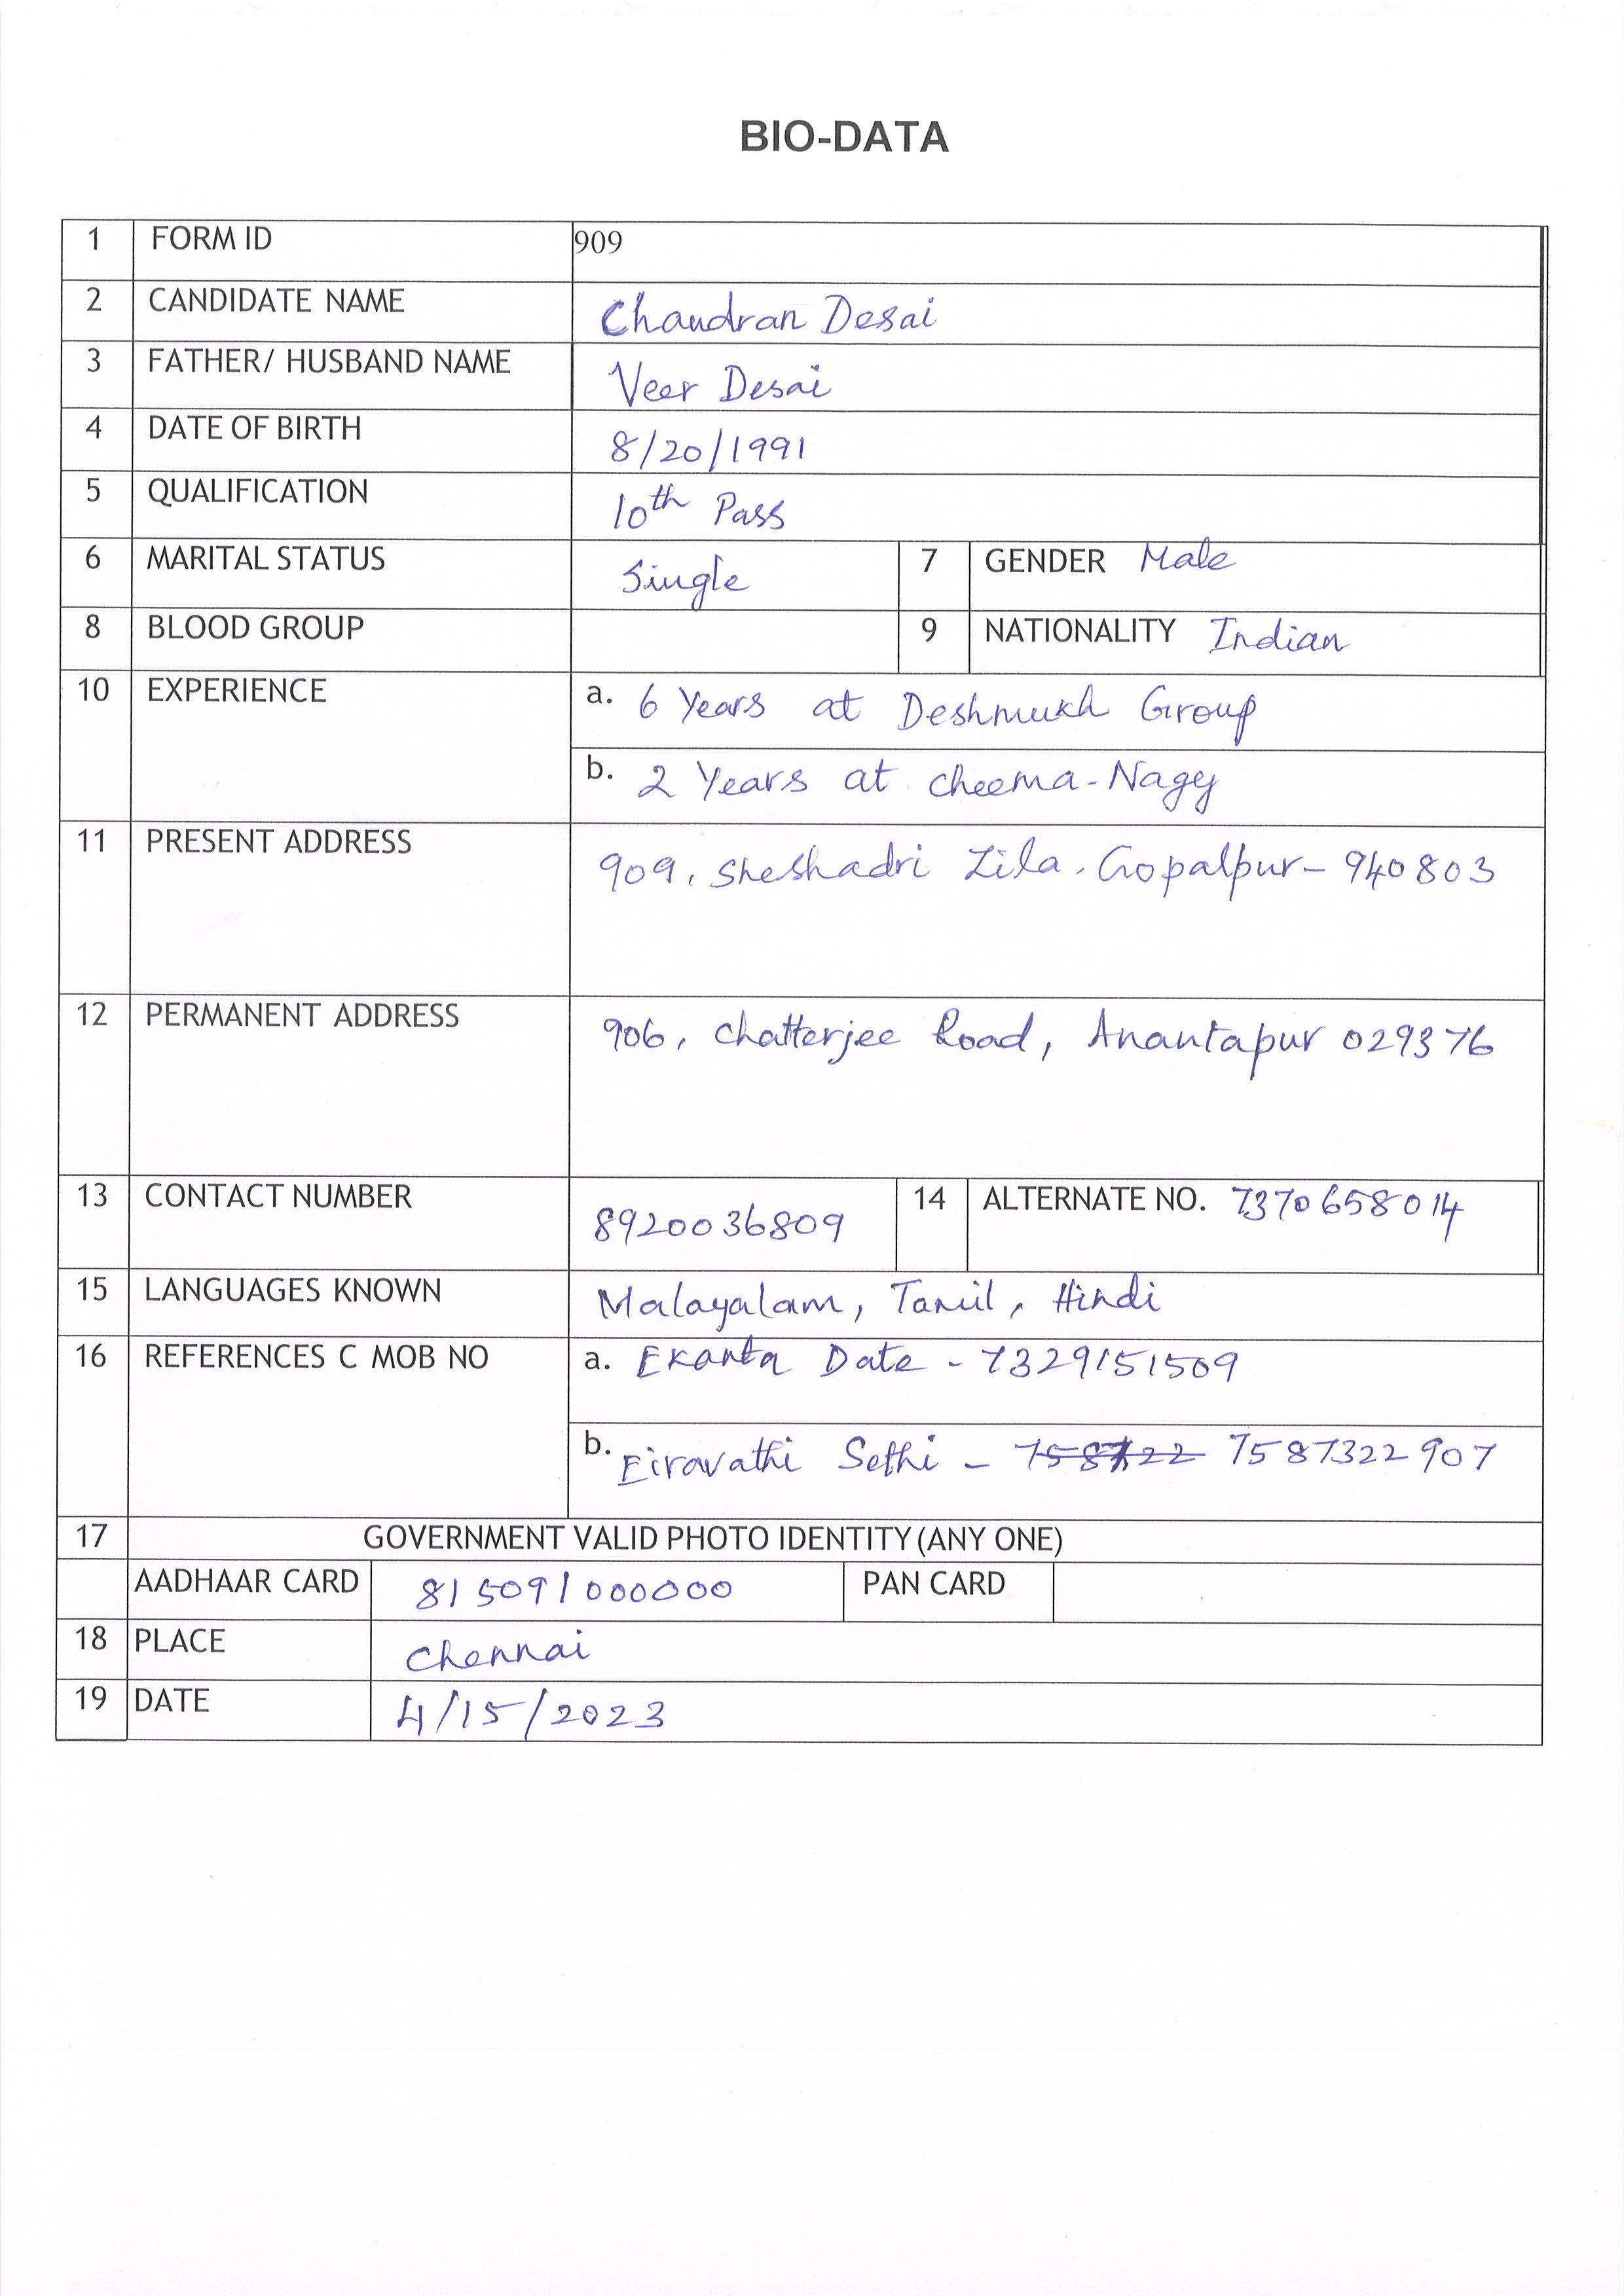 BIO-DATA
1 FORM ID 909
2 CANDIDATE NAME Chandran Desai
3 FATHER/ HUSBAND NAME Veer Desai
4 DATE OF BIRTH 8/20/1991
5 QUALIFICATION 10th Pass
6 MARITAL STATUS Single 7 GENDER Male
8 BLOOD GROUP 9 NATIONALITY Indian
10 EXPERIENCE a. 6 Years at Deshmukh Group
b. 2 Years at Cheema-Nagy
11 PRESENT ADDRESS 909, Sheshadri Zila, Gopalpur- 940803
12 PERMANENT ADDRESS 906, Chatterjee Road, Anantapur 029376
13 CONTACT NUMBER 8920036809 14 ALTERNATE NO. 7370658014
15 LANGUAGES KNOWN Malayalam, Tamil, Hindi
16 REFERENCES C MOB NO a. Ekanta Date - 7329151509
b. Eiravathi Sethi - 7587322907
17 GOVERNMENT VALID PHOTO IDENTITY (ANY ONE)
AADHAAR CARD 815091000000 PAN CARD
18 PLACE Chennai
19 DATE 4/15/2023